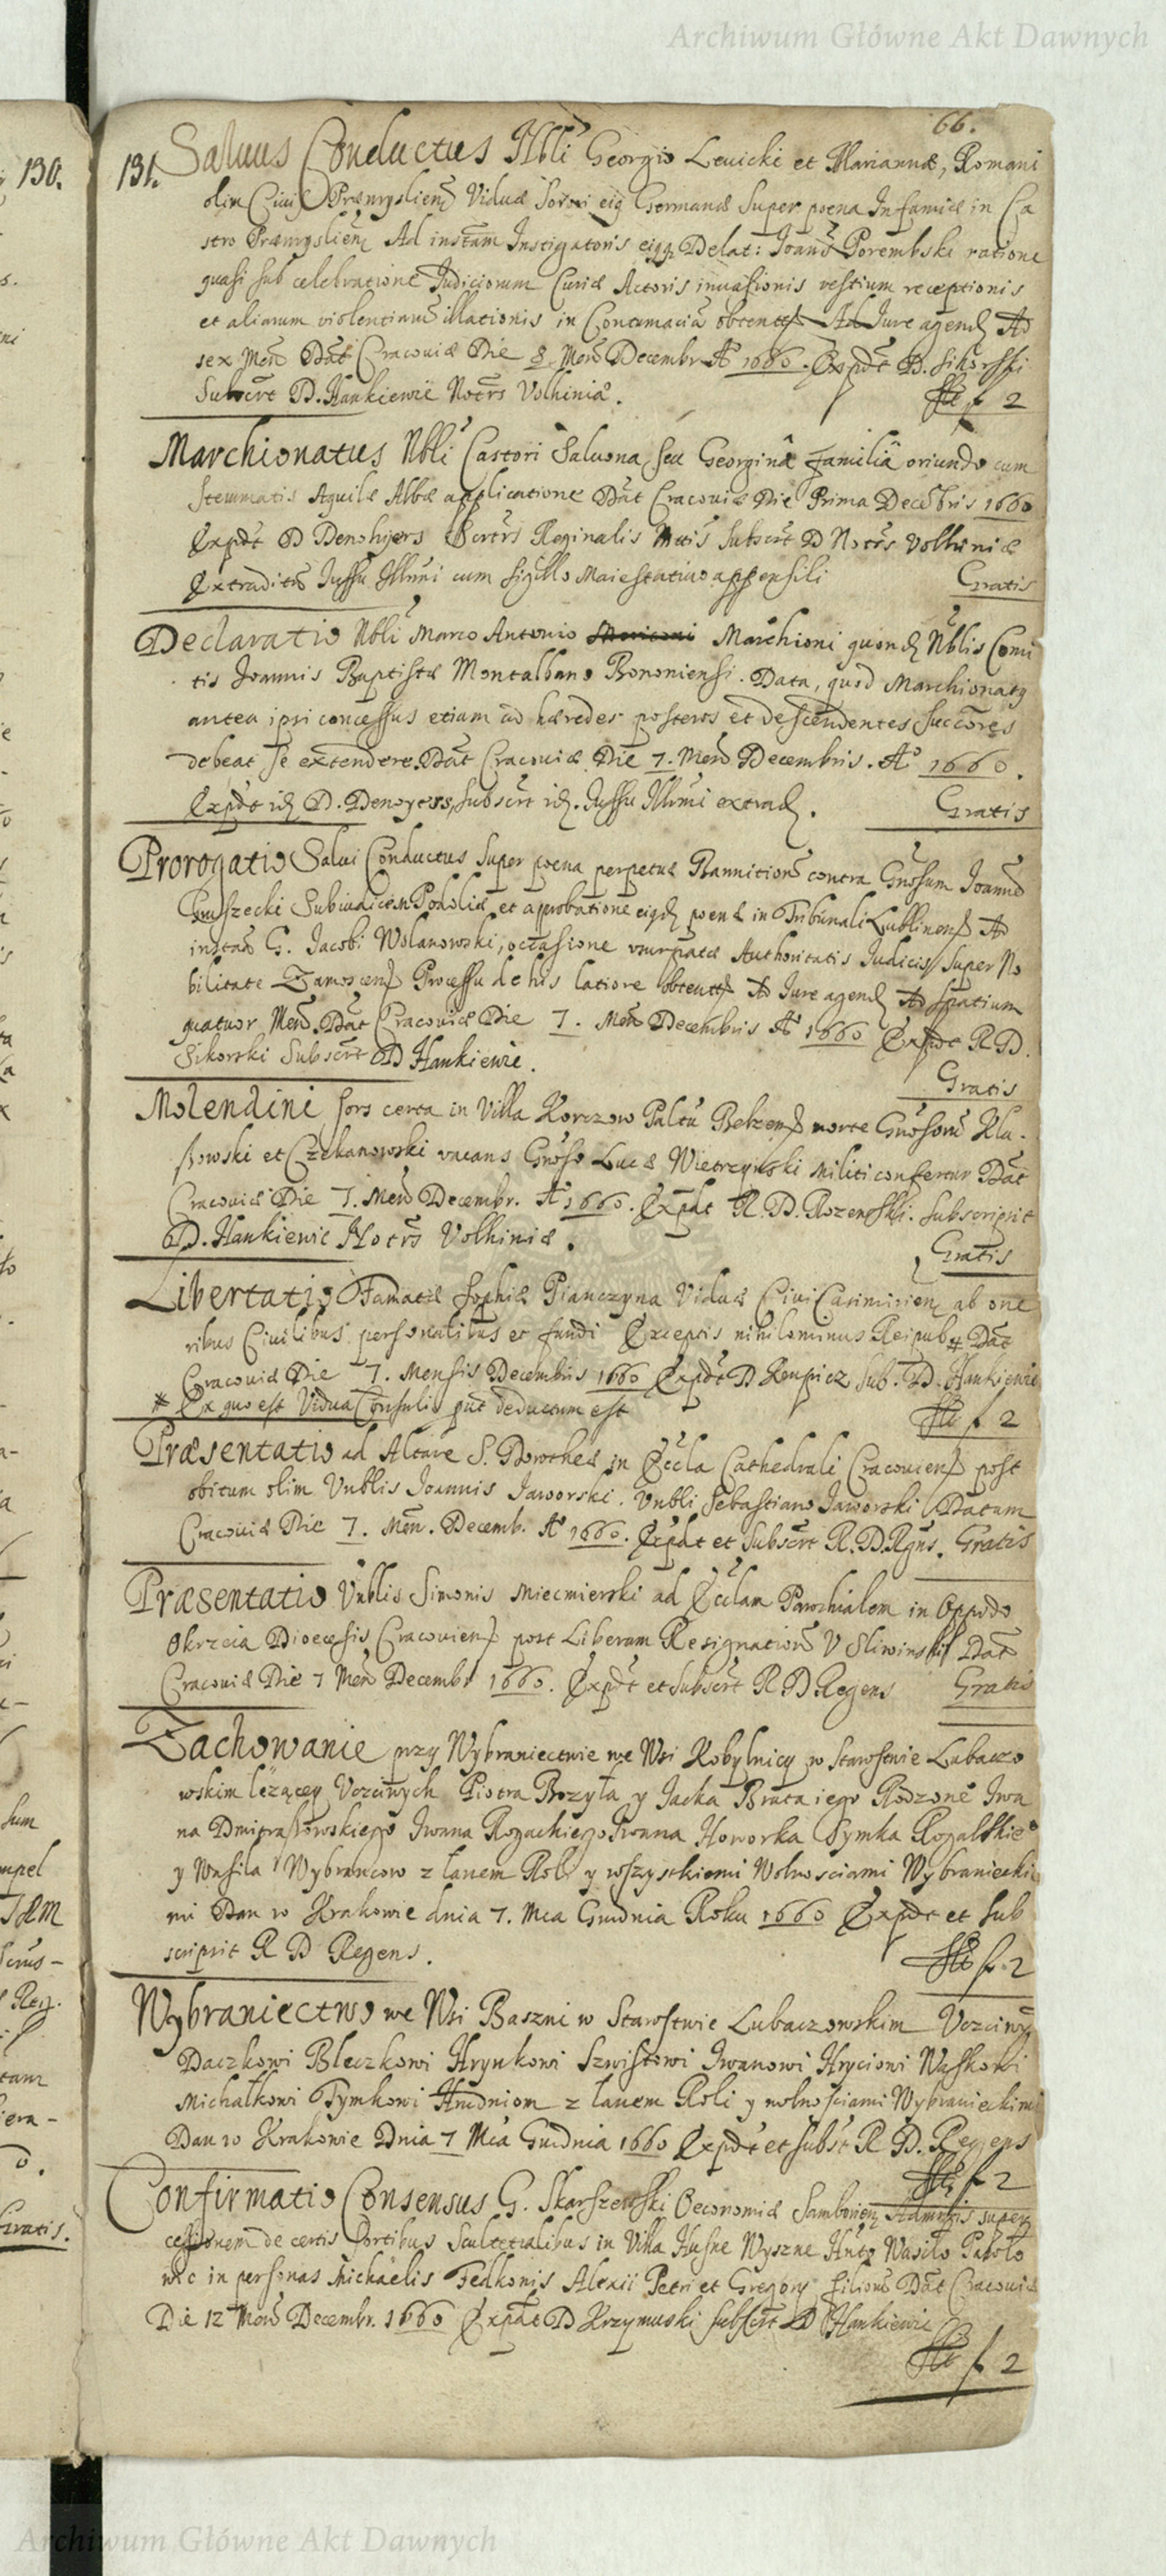 Archiwum Główne Akt Dawnych
66.
130.
131. Saluus Conductus Nbli Georgio Lewicki et Mariannæ, Romani
olim Ciuis Præmyslien Viduæ Sorori eiq Germanæ super poena Infamiæ in Ca
stro Præmyslien Ad instam Instigatoris eiqq Delat: Joañs Porembski ratione
quasi sub celebratione Judiciorum Curiæ Actoris inuasionis vestium receptionis
et aliarum violentiarũ illationis in Contumaciã obtent Ad Jure agend Ad
sex Men Dat Cracouiæ Die 8 Men Decembr Aº 1660. Expdt D. Sikorski
Subscrt D. Hankiewic Notrs Volhiniæ.
f 2
Marchionatus Nbli Castori Saluona seu Georginâ familiâ oriundo cum
stemmatis Aquilæ Albæ applicatione Dat Cracouiæ Die Prima Decebris 1660
Expdt D Denohyers Secrtrs Reginalis Mtis Subscrt D Notrs Volhiniæ
Extradit Jussu Illmi cum sigillo Maiestatiuo appensili
Gratis
Declaratio Nbli Marco Antonio Marchioni quond Nblis Comi
tis Joannis Baptistæ Montalbano Bononiensi. Data, quod Marchionatq
antea ipsi concessus etiam ad hæredes posteros et descendentes succores
debeat se extendere. Dat Cracouiæ Die 7. Men Decembris. Aº 1660.
Expdt id D. Denoyers, subscrt id. Jussu Illmi extrad.
Gratis
Prorogatio Salui Conductus super poena perpetuæ Bannitions contra Gnosum Joanne
Subiudicem Podoliæ et approbatione eiqd poenæ in Tribunali Lublinens Ad
instan G. Jacobi Wolanowski, occasione vsurpatæ Authoritatis Judicis super No
bilitate Zamoscens Processu de his latiore obtent Ad Jure agend Ad spatium
quatuor Men. Dat Cracouiæ Die 7. Men Decembris Aº 1660 Expdt R D.
Sikorski Subscrt D Hankiewic.
Gratis
Molendini sors certa in Villa Korczow Paltu Belzens morte Gnosorũ Kla-
ssowski et Czekanowski vacans Gnoso Lucæ Wietrzynski Militi confertur Dat
Cracouiæ Die 7. Men Decembr. Aº 1660. Expdt R. D. Rozenski. subscripsit
D. Hankiewic Notrs Volhiniæ.
Gratis
Libertatio Famatæ Sophiæ Pianczyna Viduæ Ciui Casimirien ab one
ribus Ciuilibus personalibus et fundi Exceptis nihilominus Reipub # Dat
Cracouiæ Die 7. Mensis Decembris 1660 Expdt D Krupicz Sub. D. Hankiewic
* Ex quo est Vidua Consulis put deductum est
f 2
Præsentatio ad Altare S. Dorotheæ in Eccla Cathedrali Cracouiens post
obitum olim Vnblis Joannis Jaworski. Vnbli Sebastiano Jaworski Datum
Cracouiæ Die 7. Men. Decemb. Aº 1660. Expdt et Subscrt R. D. Rgns. Gratis
Præsentatio Vnblis Simonis Miecmierski ad Ecclam Parochialem in Oppido
Okrzeia Dioecesis Cracouiens post Liberam Resignationẽ V Sliwinski Dat
Cracouiæ Die 7 Men Decembr 1660. Expdt et subscrt R D Regens
Gratis
Zachowanie przy Wybraniectwie we Wsi Kobylnicy w Starostwie Lubaczo
wskim leżącey Vczciwych Piotra Brozyła y Jacka Brata iego Rodzone Iwa
na Iwana Rogachiego Iwana Howorka Symka Rogalskie
y Wasila Wybrancow z łanem Roli y wszystkiemi Wolnosciami Wybraniecki
mi Dan w Krakowie dnia 7. Mca Grudnia Roku 1660 Expdt et Sub
scripsit R D Regens.
f. 2
Wybraniectwo we Wsi Baszni w Starostwie Lubaczowskim Vczciwy
Daczkowi Bleczkowi Hrynkowi Szwistowi Iwanowi Hryciowi Waskowi
Michałkowi Tymkowi Hrudniom z łanem Roli y wolnosciami Wybranieckimi
Dan w Krakowie Dnia 7 Mca Grudnia 1660 Expdt et subst R D. Regens
f 2
Confirmatio Consensus G. Skarszewski Oeconomiæ Samborien Admris super
cessionem de certis Sortibus Scultetialibus in Villa Husne Wyszne Hntq Wasilo Pawlo
wic in personas Michaelis Fedkonis Alexii Petri et Gregory filiorũ Dat Cracouiæ
Die 12 Men Decembr. 1660 Expdt D Krzymuski subscrt D Hankiewic
f 2
Archiwum Główne Akt Dawnych